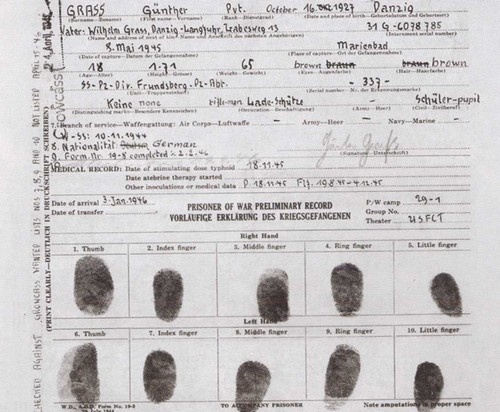 GRASS Günther Pvt. October 16.Okt.1927 Danzig
(Surname—Zuname) (First name—Vorname) (Rank—Dienstgrad) (Date and place of birth—Geburtsdatum und Geburtsort)
Vater: Wilhelm Grass, Danzig-Langfuhr, Labesweg 13 31G-6078785
(Internment serial number)
8. Mai 1945 Marienbad
(Date of capture—Datum der Gefangennahme) (Place of capture—Ort der Gefangennahme)
18 1.71 65 brown braun braun brown
(Age—Alter) (Height—Grösse) (Weight—Gewicht) (Eyes—Augenfarbe) (Hair—Haarfarbe)
SS-Pz-Div. Frundsberg-Pz-Abt. - 337 -
Keine none rifle-man Lade-Schütze - schüler-pupil
7. Branch of service—Waffengattung: Air Corps—Luftwaffe - Army—Heer - Navy—Marine -
(W)-SS: 10.11.1944
8. Nationalität Deutsch German
9. Form. Nr. 19-8 completed 2.2.46 Günter Grass
(Signature—Unterschrift)
MEDICAL RECORD: Date of stimulating dose typhoid 18.11.45
Date atebrine therapy started
Other inoculations or medical data P 18.11.45 Flf. 19.8.45-4.12.45
Date of arrival 3.Jan.1946 PRISONER OF WAR PRELIMINARY RECORD P/W camp 29-1
Date of transfer VORLÄUFIGE ERKLÄRUNG DES KRIEGSGEFANGENEN Group No.
Theater USFET
Right Hand
1. Thumb 2. Index finger 3. Middle finger 4. Ring finger 5. Little finger
Left Hand
6. Thumb 7. Index finger 8. Middle finger 9. Ring finger 10. Little finger
W.D., A.G.O. Form No. 19-2 TO ACCOMPANY PRISONER Note amputations in proper space
(PRINT CLEARLY—DEUTLICH IN DRUCKSCHRIFT SCHREIBEN)
CHECKED AGAINST CROWCASS WANTED LISTS NOS 7, 8, 9 AND 10 NOT LISTED APRIL